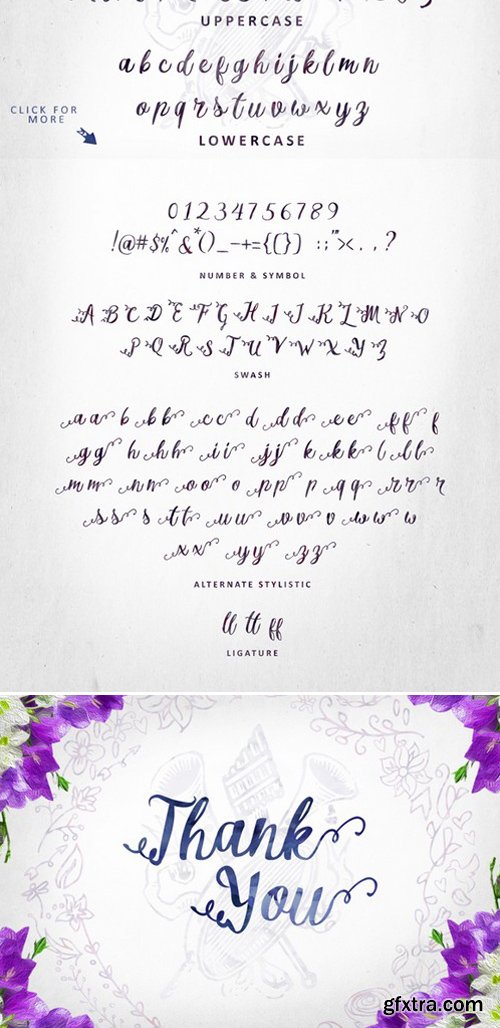 UPPERCASE
a b c d e f g h i j k l m n
CLICK FOR
MORE
o p q r s t u v w x y z
LOWERCASE
0 1 2 3 4 7 5 6 7 8 9
!@#$%^&*()_-+={[}] :;'"><.,?
NUMBER & SYMBOL
A B C D E F G H I J K L M N O
P Q R S T U V W X Y Z
SWASH
a a b b b c c d d d e e f f f
g g h h h i i j j k k k l l l
m m n n o o o p p p q q r r r
s s s t t u u v v v w w w
x x y y z z
ALTERNATE STYLISTIC
ll tt ff
LIGATURE
Thank
You
gfxtra.com